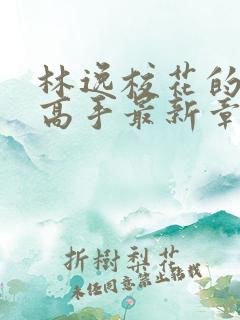 林逸校花的
高手最新章
折樹梨花
未经同意禁止转载